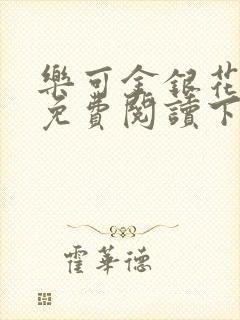 樂可金銀花
免費閱讀下
霍華德